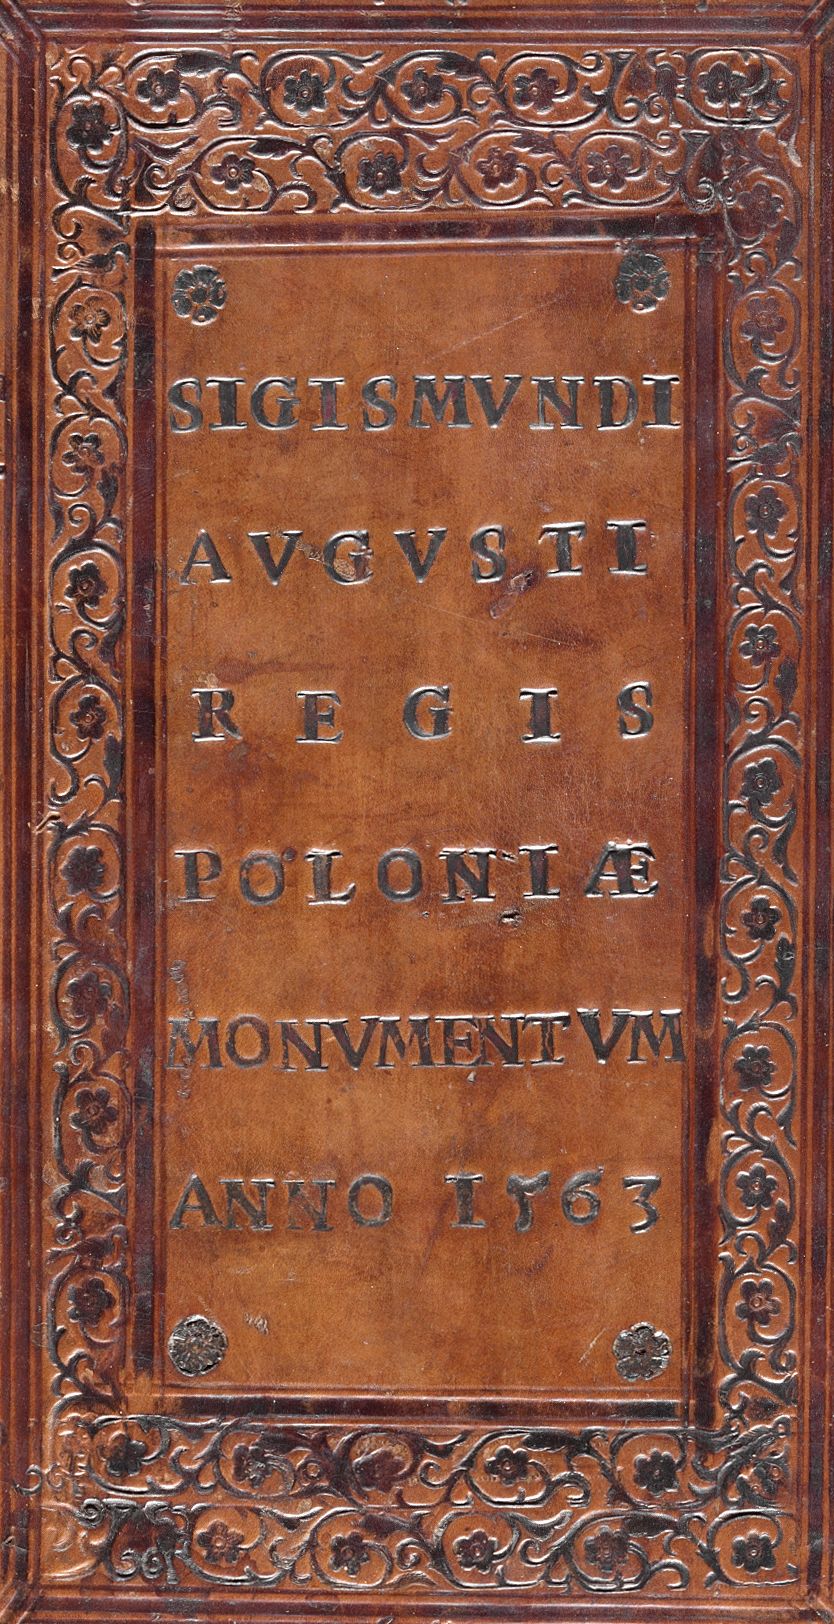 SIGISMVNDI
AVGVSTI
REGIS
POLONIÆ
MONVMENTVM
ANNO 1563